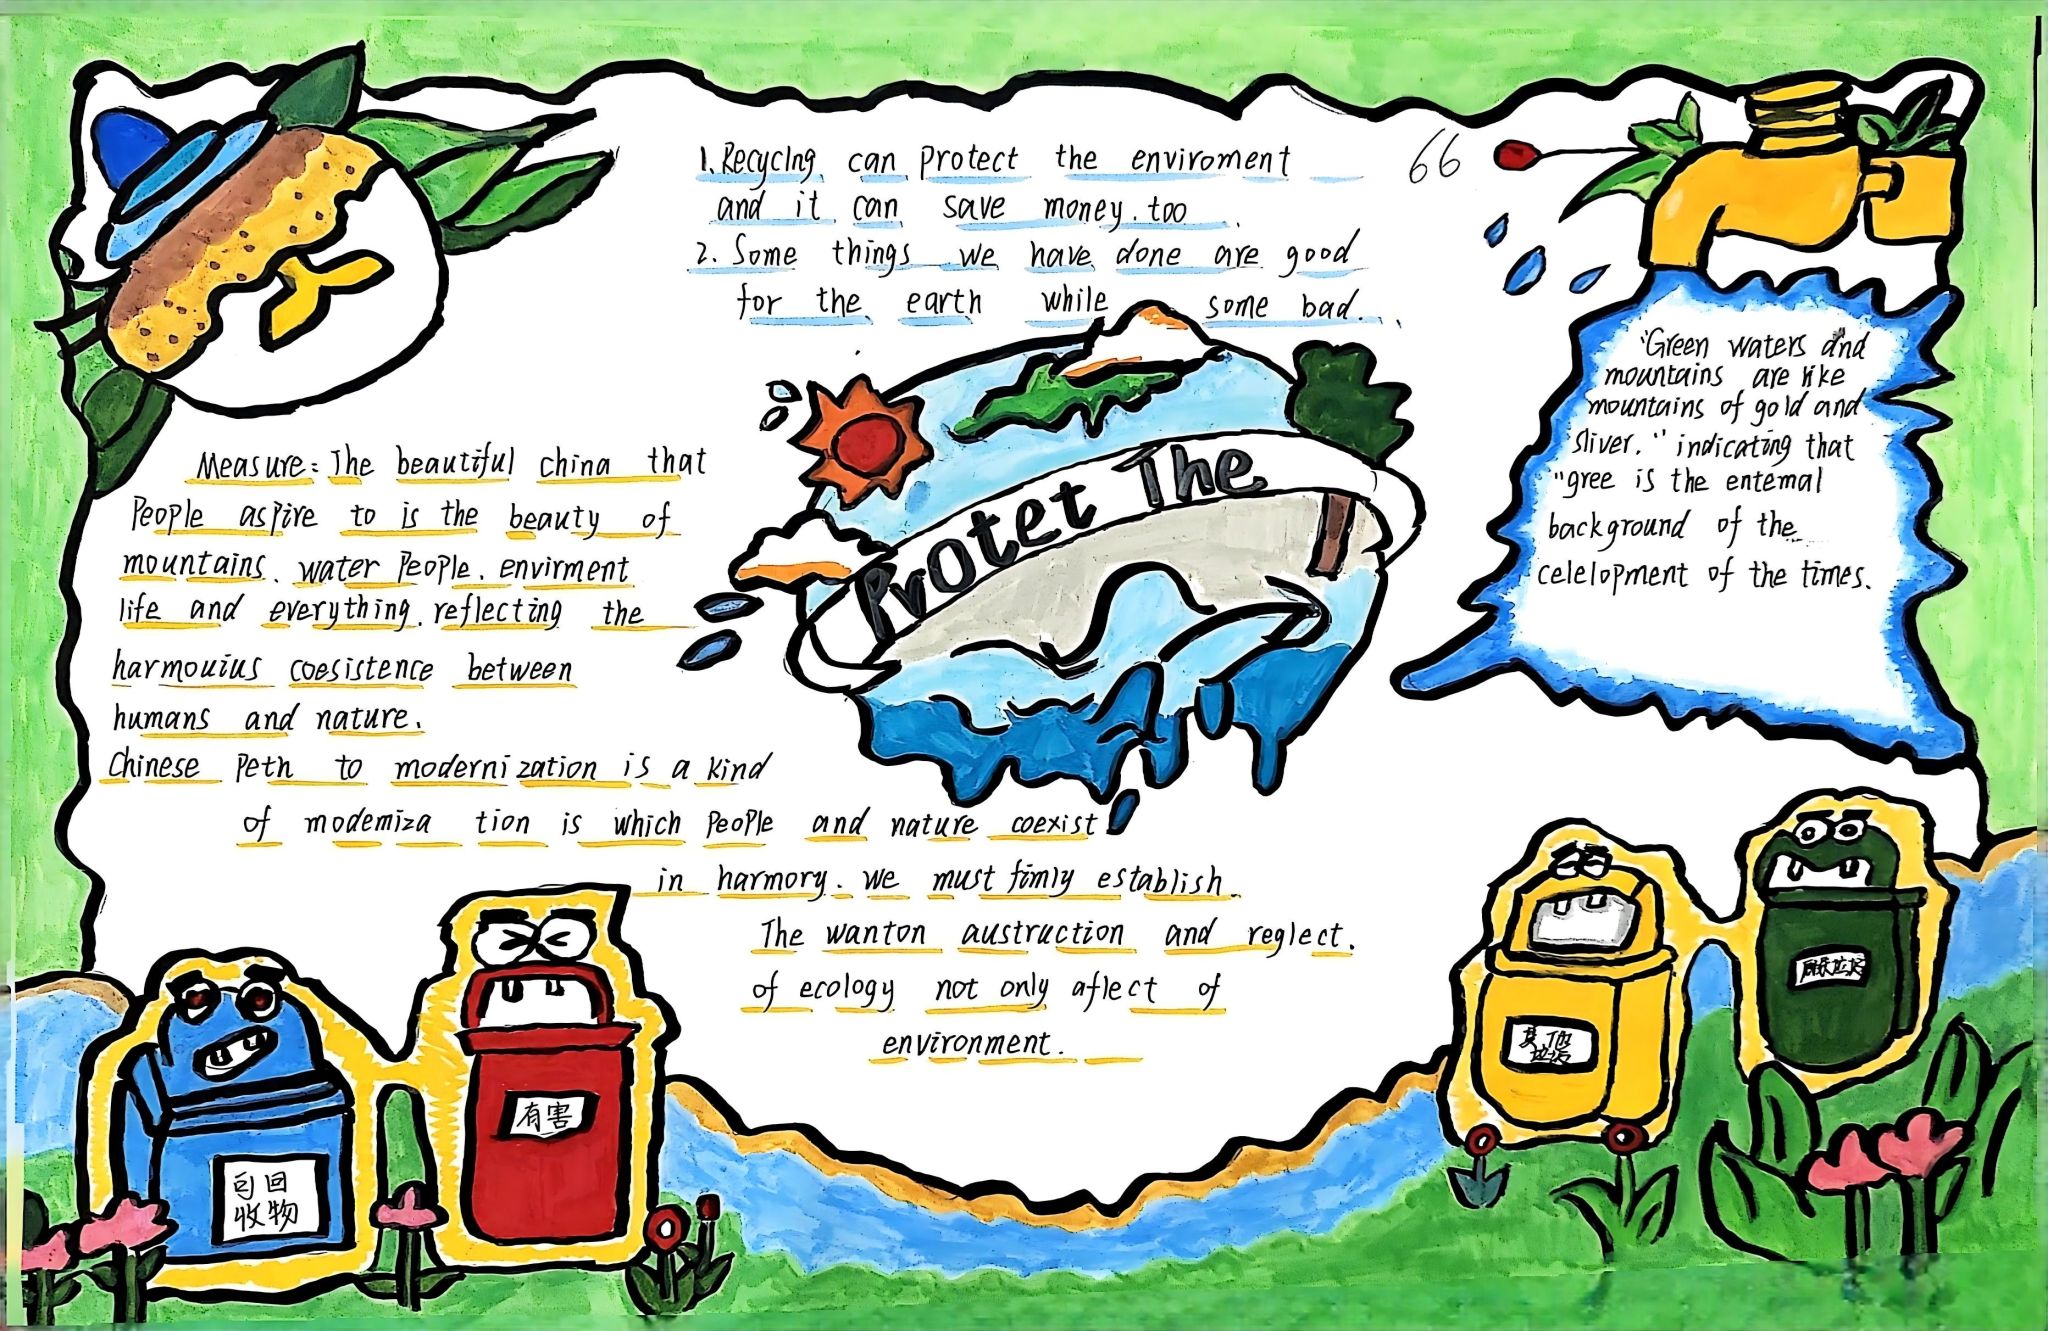 1. Recycing can protect the enviroment
and it can save money. too
2. Some things we have done are good
for the earth while some bad.
66
"Green waters and
mountains are like
mountains of gold and
sliver." indicating that
"gree is the entemal
background of the
celelopment of the times.
Protet The
Measure: The beautiful china that
People aspire to is the beauty of
mountains. water People. envirment
life and everything. reflecting the
harmouius coesistence between
humans and nature.
Chinese Peth to modernization is a kind
of modemiza tion is which people and nature coexist
in harmory. we must fimly establish.
The wanton austruction and reglect.
of ecology not only aflect of
environment.
可回
收物
有害
其他
垃圾
厨余垃圾